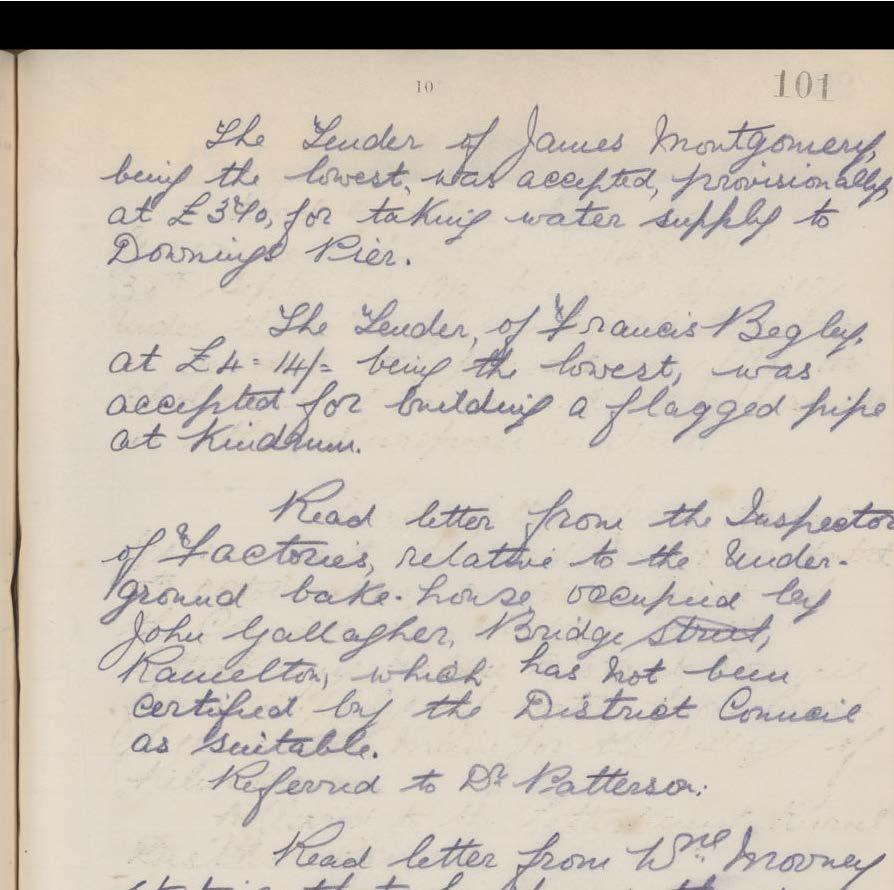 10
101
The Tender of James Montgomery,
being the lowest, was accepted, provisionally,
at for taking water supply to
Downings Pier.
The Tender, of Francis Begley,
at £4=14/= being the lowest, was
accepted for building a flagged pipe
at Kindrum.
Read letter from the Inspector
of Factories, relative to the Under-
ground bake-house, occupied by
John Gallagher, Bridge Street,
Ramelton, which has not been
certified by the District Council
as suitable.
Referred to Dr. Patterson.
Read letter from Wm